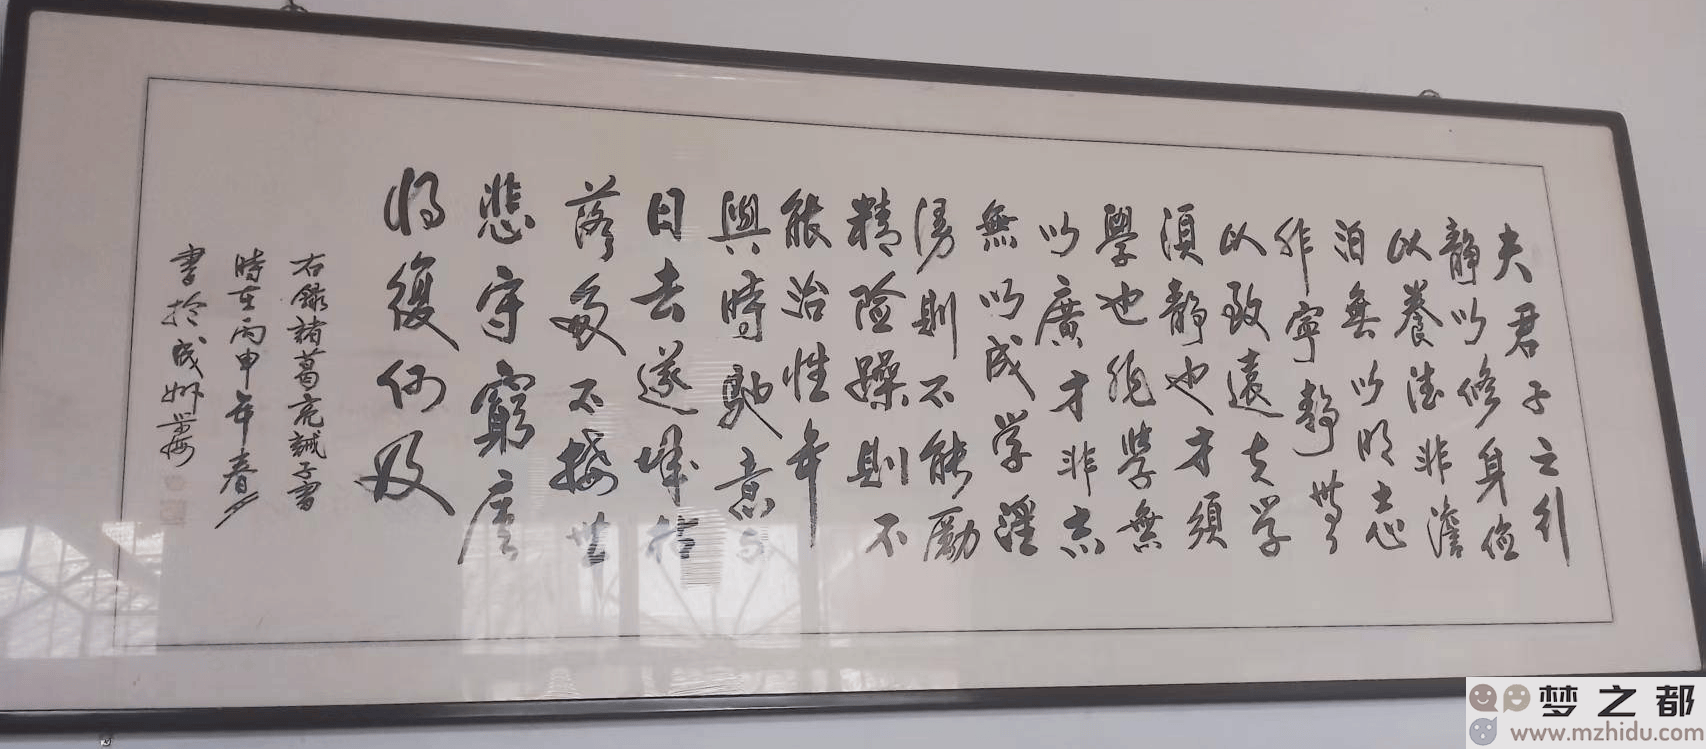 夫君子之行
靜以修身儉
以養德非澹
泊無以明志
非寧靜無
以致遠夫学
須靜也才須
學也非學無
以廣才非志
無以成学淫
則不能勵
精險躁則不
能治性年
與時馳意与
日去遂成枯
落多不接世
悲守窮廬
將復何及
右錄諸葛亮誡子書
時在丙申年春
書於成
梦之都
www.mzhidu.com